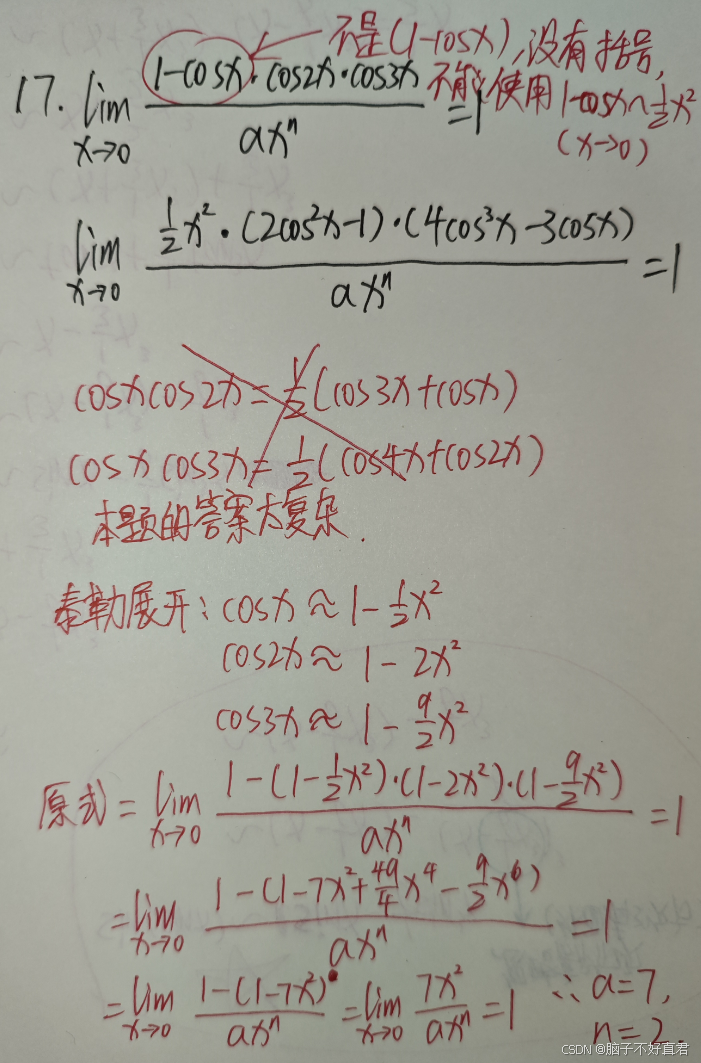 不是(1-cosx),没有括号,
不能使用1-cosx~½x²
(x→0)
17. lim x→0 (1-cosx·cos2x·cos3x)/(axⁿ) = 1
lim x→0 (½x²·(2cos²x-1)·(4cos³x-3cosx))/(axⁿ) = 1
cosxcos2x=½(cos3x+cosx)
cosxcos3x=½(cos4x+cos2x)
本题的答案太复杂.
泰勒展开: cosx≈1-½x²
cos2x≈1-2x²
cos3x≈1-9/2x²
原式=lim x→0 (1-(1-½x²)·(1-2x²)·(1-9/2x²))/(axⁿ) = 1
=lim x→0 (1-(1-7x²+49/4x⁴-9/2x⁶))/(axⁿ) = 1
=lim x→0 (1-(1-7x²))/(axⁿ) =lim x→0 7x²/(axⁿ) = 1 ∴a=7,
n=2.
CSDN @脑子不好直君